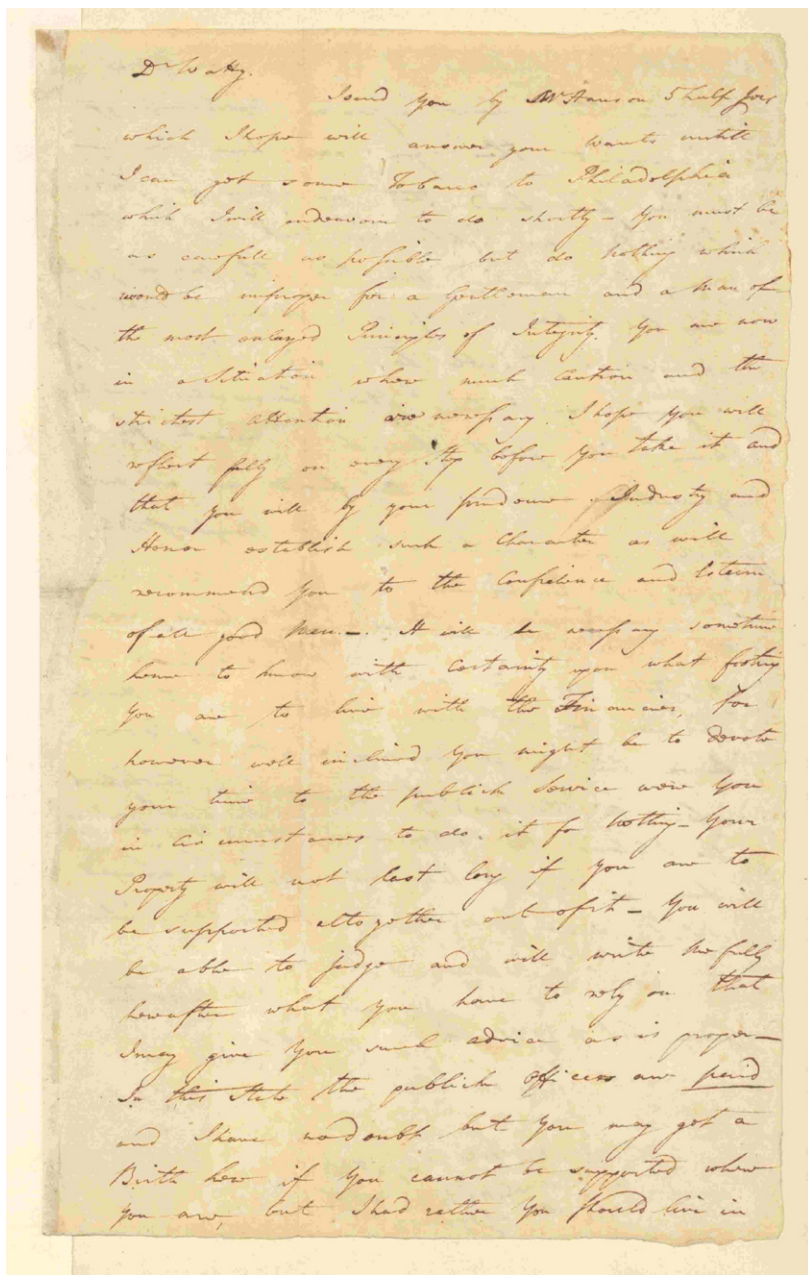 Dr Watty.
I send you by Mr Hanson 5 half Joes
which I hope will answer your wants untill
I can get some Tobacco to Philadelphia
which I will endeavour to do shortly – You must be
as carefull as possible but do nothing which
would be improper for a Gentleman and a Man of
the most enlarged Principles of Integrity. You are now
in a Situation where much Caution and the
strictest attention are necessary. I hope you will
reflect fully on every Step before you take it and
that you will by your prudence Industry and
Honor establish such a Character as will
recommend you to the Confidence and Esteem
of all good Men. – It will be necessary sometime
hence to know with Certainty upon what footing
you are to live with the Financier, for
however well inclined you might be to devote
your time to the publick Service were you
in Circumstances to do it for nothing – Your
Property will not last long if you are to
be supported altogether out of it – You will
be able to judge and will write me fully
hereafter what you have to rely on that
I may give you such advice as is proper –
In this State the publick Officers are paid
and I have no doubt but you may get a
Birth here if you cannot be supported where
you are, but I had rather you should live in